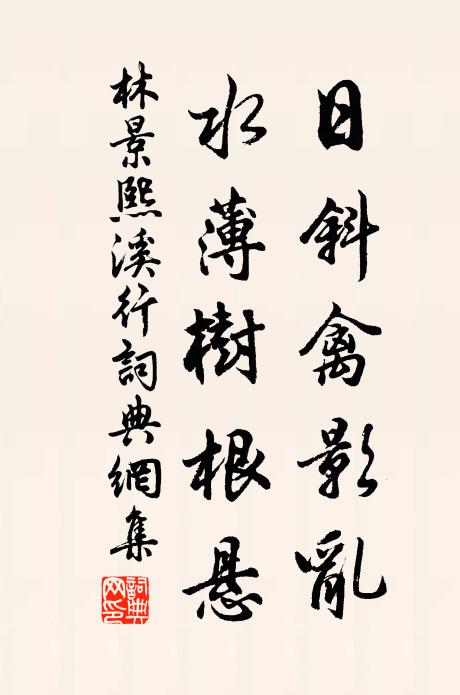 日斜禽影亂
水薄樹根懸
林景熙溪行詞典網集
詞典
网印